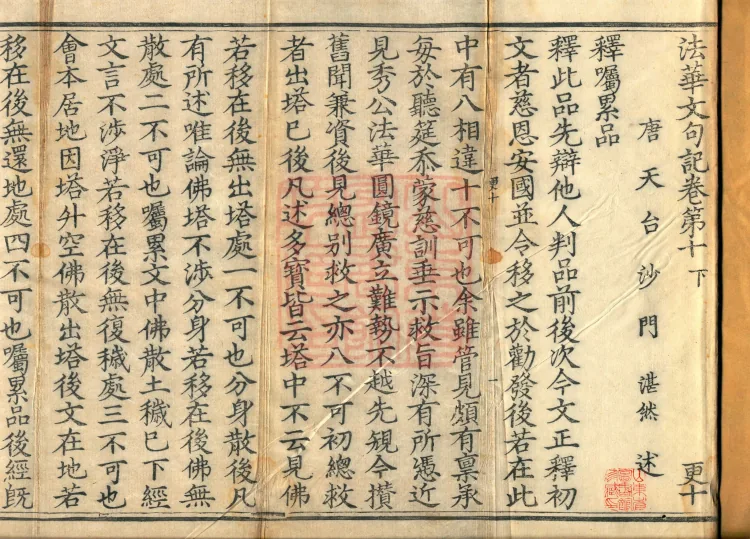 法華文句記卷第十下 更十
唐天台沙門湛然述
釋囑累品
釋此品先辯他人判品前後次今文正釋初
文者慈恩安國並令移之於勸發後若在此
中有八相違十不可也余雖管見頗有禀承
更十 一
每於聽莚忝蒙慈訓垂示救旨深有所憑近
見秀公法華圓鏡廣立難勢不越先䂓今攢
舊聞兼資後見總別救之亦八不可初總救
者出塔已後凡述多寶皆云塔中不云見佛
若移在後無出塔處一不可也分身散後凡
有所述唯論佛塔不涉分身若移在後佛無
散處二不可也囑累文中佛散土穢已下經
文言不涉淨若移在後無復穢處三不可也
會本居地因塔外空佛散出塔後文在地若
移在後無還地處四不可也囑累品後經旣